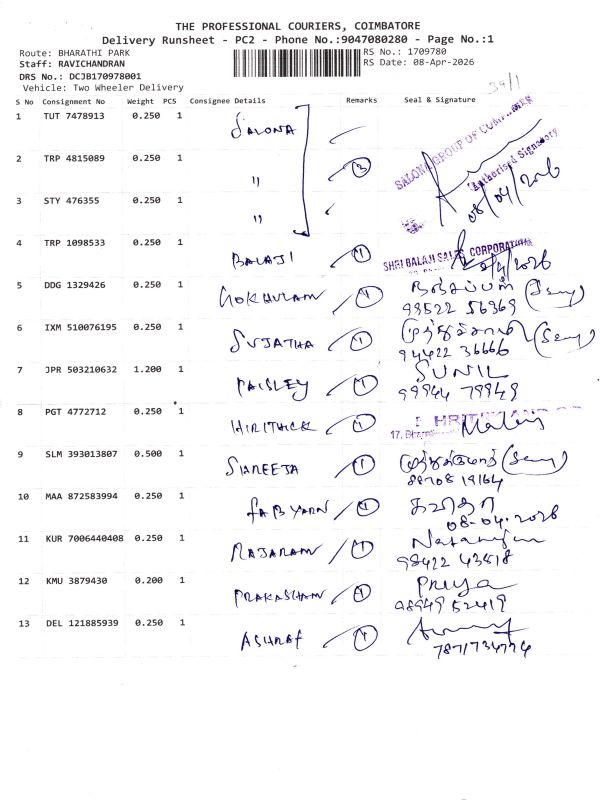 THE PROFESSIONAL COURIERS, COIMBATORE
Delivery Runsheet - PC2 - Phone No.:9047080280 - Page No.:1
Route: BHARATHI PARK
RS No.: 1709780
Staff: RAVICHANDRAN
RS Date: 08-Apr-2026
DRS No.: DCJB170978001
Vehicle: Two Wheeler Delivery
39/1
S No Consignment No Weight PCS Consignee Details Remarks Seal & Signature
1 TUT 7478913 0.250 1 SALONA
SALONA GROUP OF COMPANIES
Authorised Signatory
08/04/2026
2 TRP 4815089 0.250 1 " 3
3 STY 476355 0.250 1 "
4 TRP 1098533 0.250 1 BALAJI 1
SHRI BALAJI SALES CORPORATION
5 DDG 1329426 0.250 1 GOKHULAM 1
99522 56969
6 IXM 510076195 0.250 1 SUJATHA 1
94422 36666
7 JPR 503210632 1.200 1 PAISLEY 1 SUNIL
99944 79949
8 PGT 4772712 0.250 1 HIRITHICK 1
9 SLM 393013807 0.500 1 SHREEJA 1
10 MAA 872583994 0.250 1 FAB YARN 1 கவிதா
08-04-2026
11 KUR 7006440408 0.250 1 RAJARAM 1
98422 43818
12 KMU 3879430 0.200 1 PRAKASHAM 1 Priya
98949 52419
13 DEL 121885939 0.250 1 ASHRAF 1
7871734774